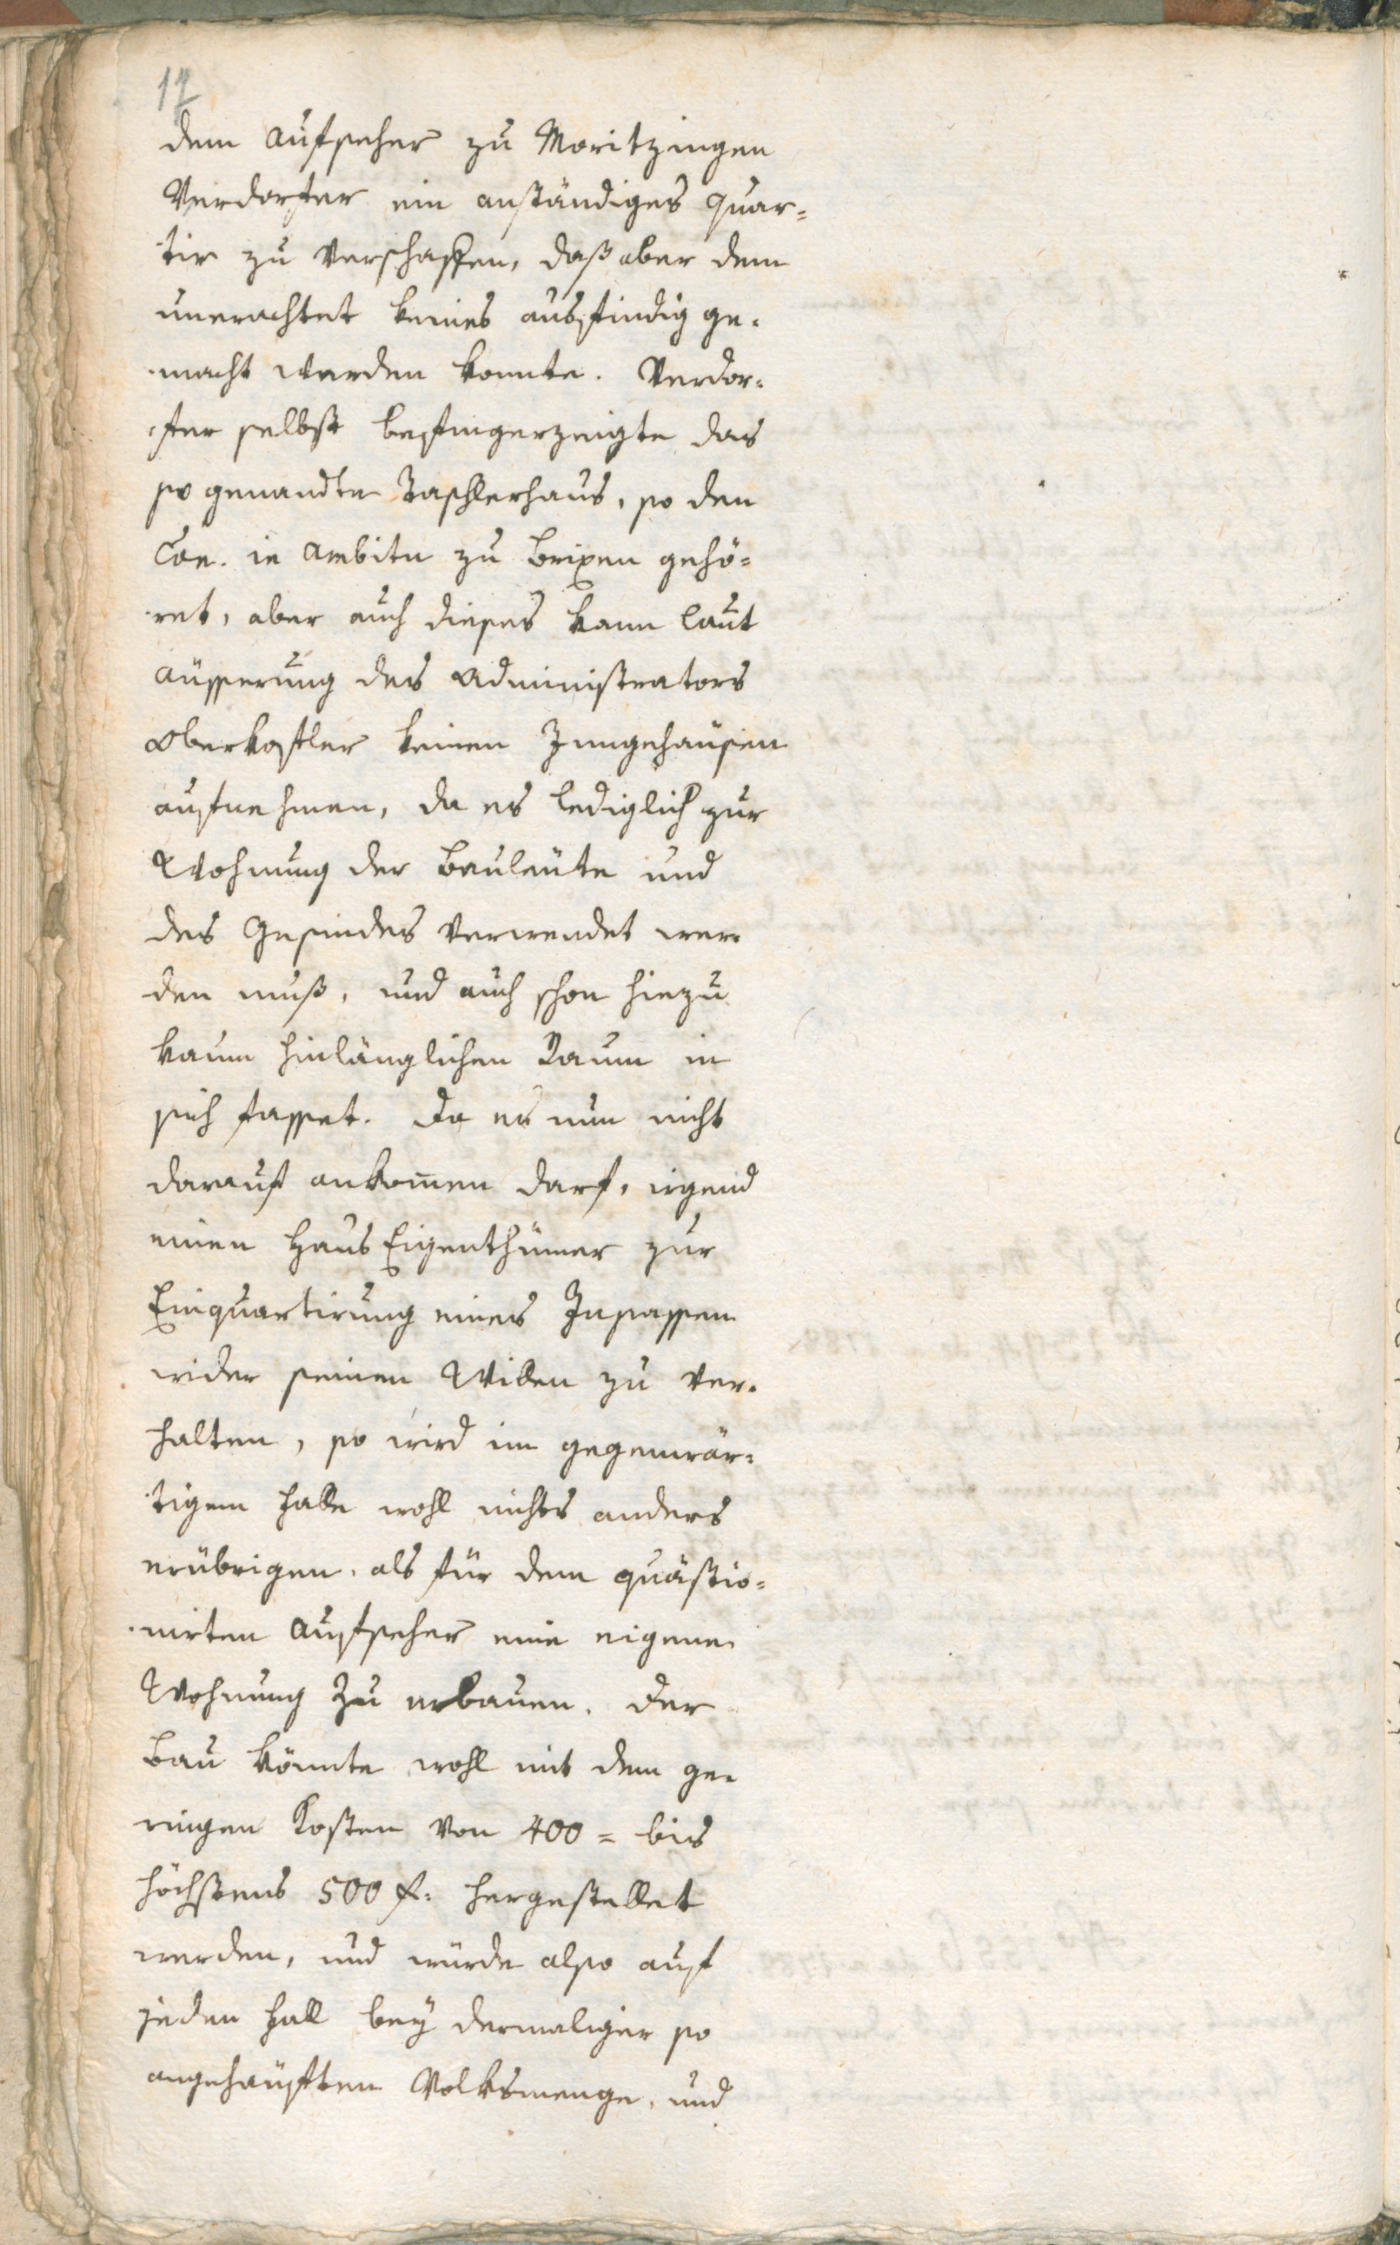 12
dem Aufseher zu Moritzingen
Verdorfer ein anständiges Quar=
tir zu verschaffen, daß aber dem
unerachtet keines ausfindig ge=
macht werden konnte. Verdor=
fer selbst befingerzeigte das
so genandte Taschlerhaus, so den
Can. in Ambitu zu Brixen gehö=
ret, aber auch dieses kann laut
äüsserung des Administrators
Oberkofler keinen Inngehäusen
aufnehmen, da es lediglich zur
Wohnung der Bauleüte und
des Gesindes verwendet wer=
den muß, und auch schon hiezu
kaum hinlänglichen Raum in
sich fasset. Da es nun nicht
darauf ankom̄en darf, irgend
einen Haus Eigenthümer zur
Einquartirung eines Insassen
wider seinen Willen zu ver=
halten, so wird im gegenwär=
tigem Falle wohl nichts anders
erübrigen, als für dem quästio=
nirten Aufseher eine eigene
Wohnung zu erbauen. Der
Bau könnte wohl mit dem ge=
ringen Kosten von 400 = bis
höchstens 500 f: hergestellet
werden, und würde also auf
jeden Fall bey dermaliger so
angehäuften Volksmenge, und